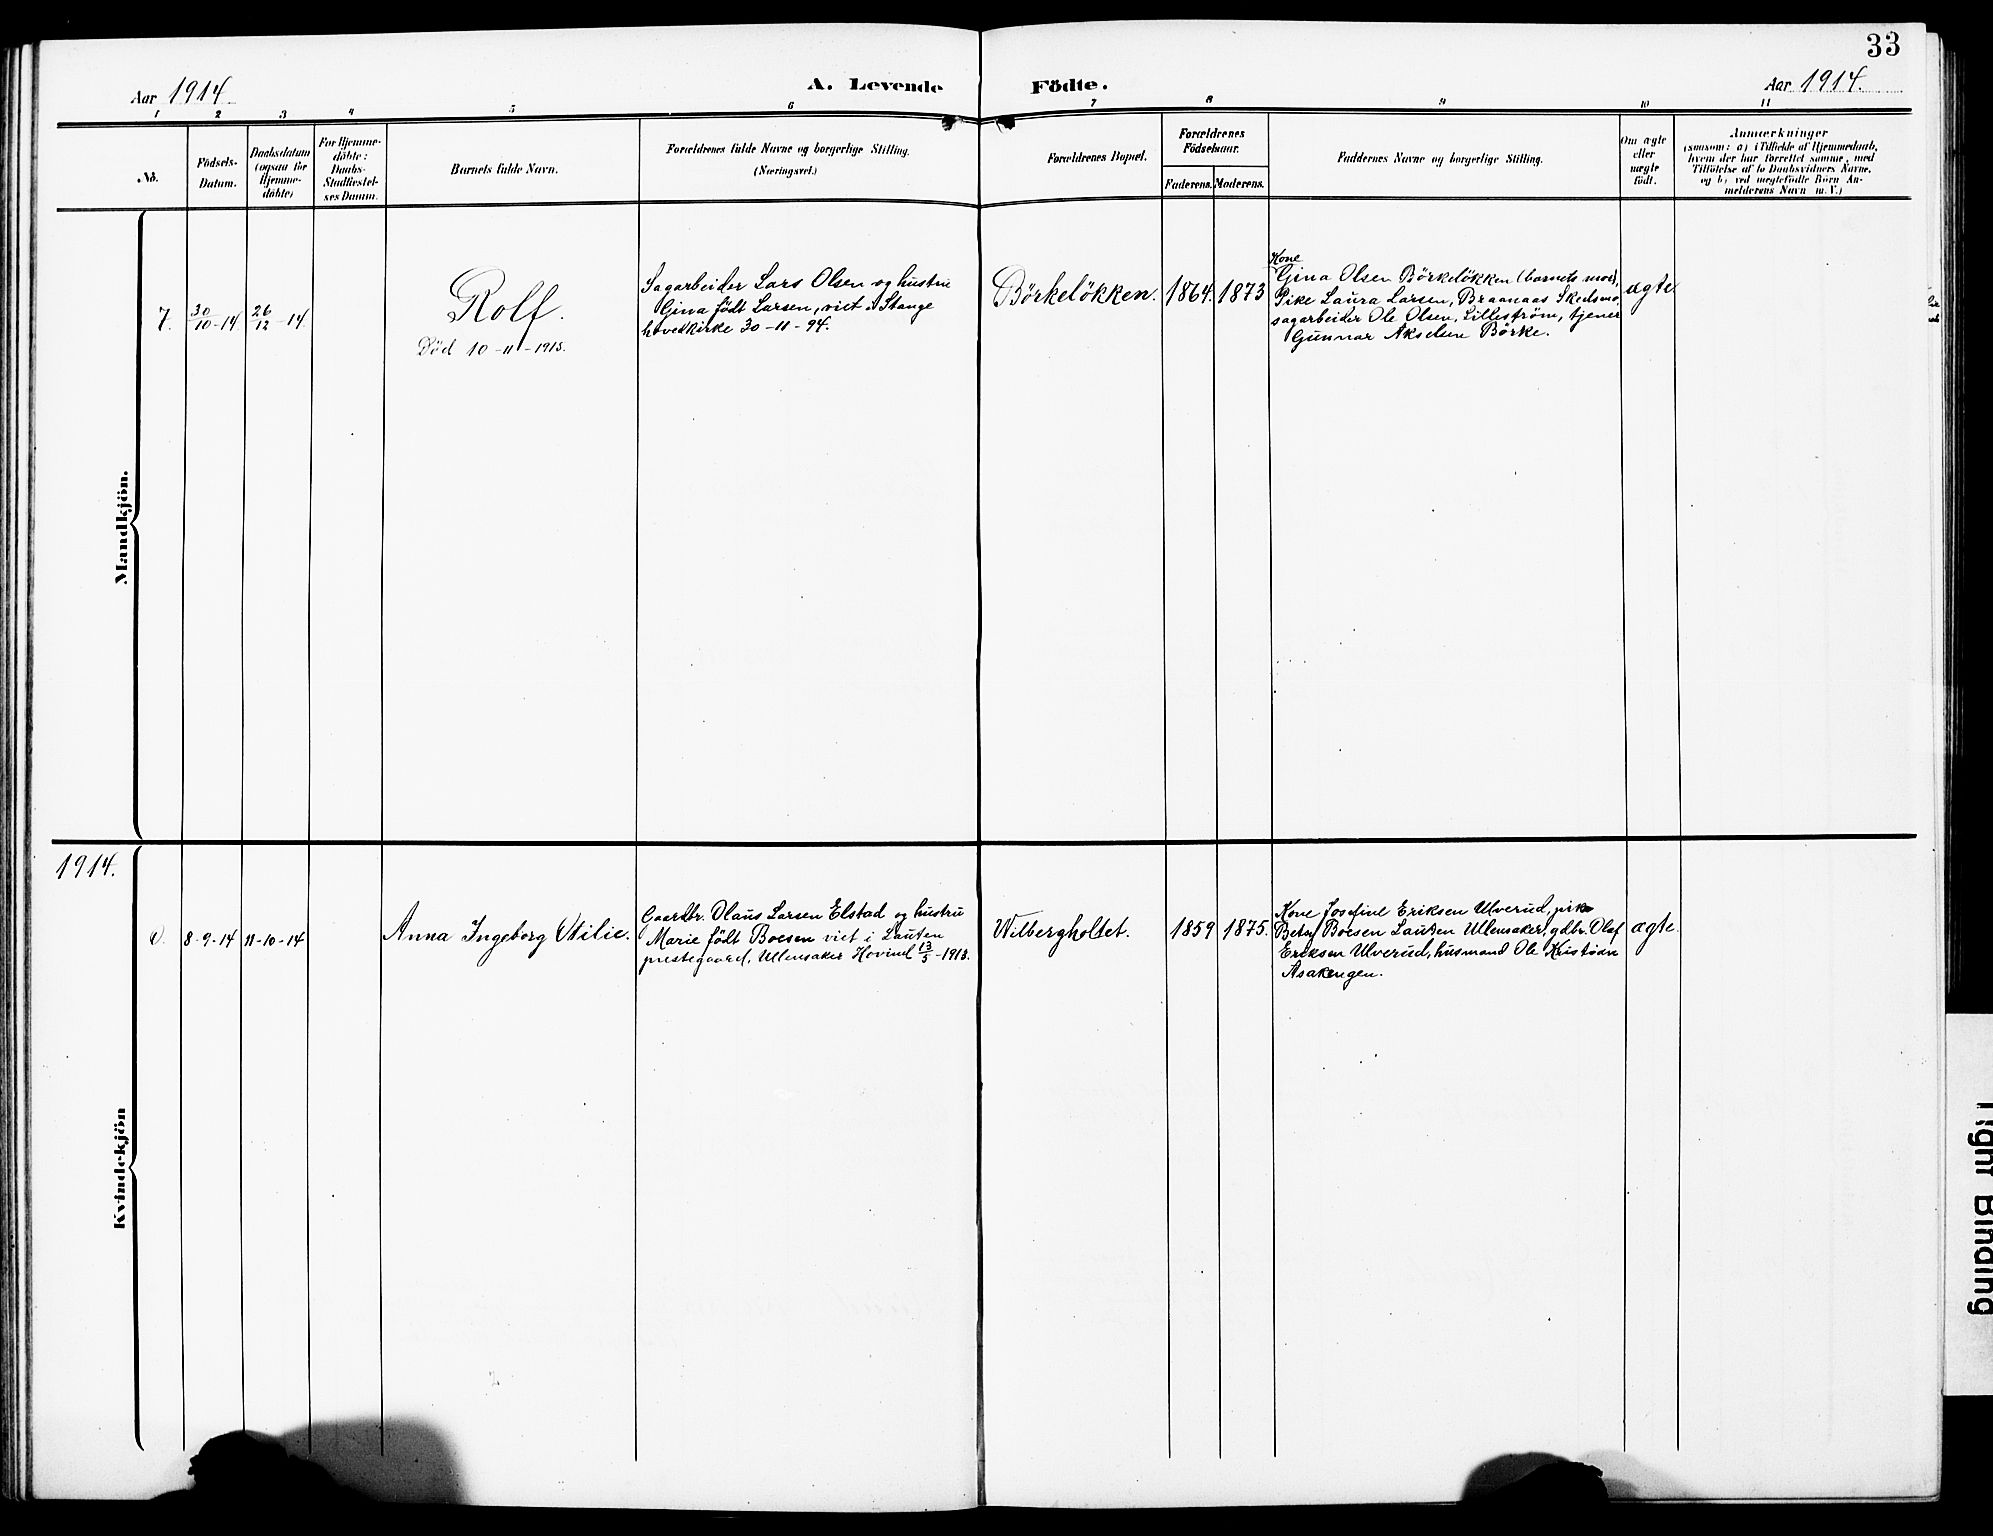 33
Aar 1914
A. Levende Födte.
Aar 1914.
1 2 3 4 5 6 7 8 9 10 11
No.
Födsels-
Datum.
Daabsdatum
(ogsaa for
Hjemme-
döbte)
For Hjemme-
döbte:
Daabs-
Stadfæstel-
ses Datum.
Barnets fulde Navn.
Forældrenes fulde Navne og borgerlige Stilling.
(Næringsvei.)
Forældrenes Bopæl.
Forældrenes
Födselsaar.
Faderens. Moderens.
Faddernes Navne og borgerlige Stilling.
Om ægte
eller
uægte
födt.
Anmærkninger
(saasom: a) i Tilfælde af Hjemmedaab,
hvem der har forrettet samme, med
Tilföielse af to Daabsvidners Navne,
og b) ved uægtefödte Börn An-
melderens Navn m. V.)
Mandkjön.
7.
30/10-14
26/12-14
Rolf.
Död 10-11-1915.
Sagarbeider Lars Olsen og hustru
Gina födt Larsen, viet i Stange
hovedkirke 30-11-94.
Börkelökken.
1864.
1873
Kone
Gina Olsen Börkelökken (barnets mor),
Pike Laura Larsen, Braanaas Skedsmo,
sagarbeider Ole Olsen, Lilleström, tjener
Gunnar Akselsen Börke.
ægte
1914.
Kvindekjön
8-9-14
11-10-14
Anna Ingeborg Otilie.
Gaardbr. Olaus Larsen Elstad og hustru
Marie födt Boesen viet i Lauten
prestegaard, Ullensaker Hovind 13/5-1913.
Wilbergholtet.
1859
1875.
Kone Josefine Eriksen Ulverud, pike
Betsy Boesen Lauten Ullensaker, gdbr. Olaf
Eriksen Ulverud, husmand Ole Kristian
Asakengen.
ægte.
Tight Binding